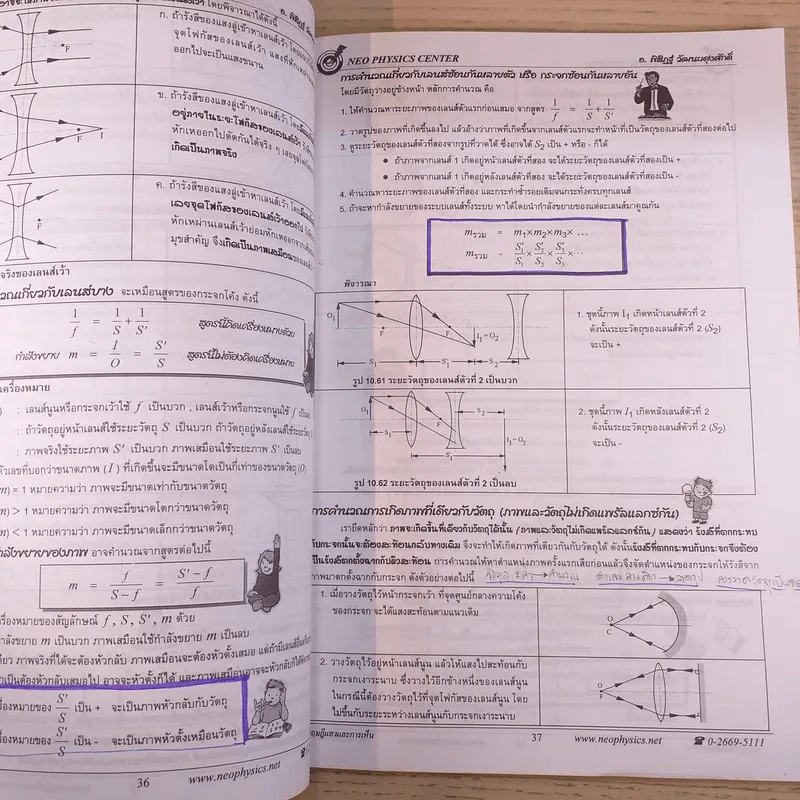 อ. พิสิฏฐ์
ก. ถ้ารังสีของแสงสู่เข้าหาเลนส์เว้า
จุดโฟกัสของเลนส์เว้า แสงที่หักเห
ออกไปจะเป็นแสงขนาน
F
ข. ถ้ารังสีของแสงสู่เข้าหาเลนส์เว้า
อยู่ภายในระยะโฟกัสของเลนส์เว้า
หักเหออกไปตัดกันได้จริง ๆ
เกิดเป็นภาพจริง
F
ค. ถ้ารังสีของแสงสู่เข้าหาเลนส์เว้า
เลยจุดโฟกัสของเลนส์เว้าออกไป
หักเหผ่านเลนส์เว้าย่อมหักเหออกจาก
มุขสำคัญ จึงเกิดเป็นภาพเสมือน
F
จริงของเลนส์เว้า
วณเกี่ยวกับเลนส์บาง จะเหมือนสูตรของกระจกโค้ง ดังนี้
1/f = 1/S + 1/S′ สูตรนี้คิดเครื่องหมายด้วย
กำลังขยาย m = I/O = S′/S สูตรนี้ไม่ต้องคิดเครื่องหมาย
เครื่องหมาย
: เลนส์นูนหรือกระจกเว้าใช้ f เป็นบวก , เลนส์เว้าหรือกระจกนูนใช้ f เป็นลบ
: ถ้าวัตถุอยู่หน้าเลนส์ใช้ระยะวัตถุ S เป็นบวก ถ้าวัตถุอยู่หลังเลนส์ใช้ระยะวัตถุ
: ภาพจริงใช้ระยะภาพ S′ เป็นบวก ภาพเสมือนใช้ระยะภาพ S′ เป็นลบ
ตัวเลขที่บอกว่าขนาดภาพ (I) ที่เกิดขึ้นจะมีขนาดโตเป็นกี่เท่าของขนาดวัตถุ (O)
m) = 1 หมายความว่า ภาพจะมีขนาดเท่ากับขนาดวัตถุ
m) > 1 หมายความว่า ภาพจะมีขนาดโตกว่าขนาดวัตถุ
m) < 1 หมายความว่า ภาพจะมีขนาดเล็กกว่าขนาดวัตถุ
กำลังขยายของภาพ อาจคำนวณจากสูตรต่อไปนี้
m = f/(S−f) = (S′−f)/f
เครื่องหมายของสัญลักษณ์ f , S , S′ , m ด้วย
กำลังขยาย m เป็นบวก ภาพเสมือนใช้กำลังขยาย m เป็นลบ
เดียว ภาพจริงที่ได้จะต้องหัวกลับ ภาพเสมือนจะต้องหัวตั้งเสมอ
เป็นต้องหัวกลับเสมอไป อาจจะหัวตั้งก็ได้ และภาพเสมือนอาจจะหัวกลับก็ได้
เครื่องหมายของ S′/S เป็น + จะเป็นภาพหัวกลับกับวัตถุ
เครื่องหมายของ S′/S เป็น - จะเป็นภาพหัวตั้งเหมือนวัตถุ
36 www.neophysics.net
NEO PHYSICS CENTER อ. พิสิฏฐ์ วัฒนผดุงศักดิ์
การคำนวณเกี่ยวกับเลนส์ซ้อนกันหลายตัว หรือ กระจกซ้อนกันหลายอัน
โดยมีวัตถุวางอยู่ข้างหน้า หลักการคำนวณ คือ
1. ให้คำนวณหาระยะภาพของเลนส์ตัวแรกก่อนเสมอ จากสูตร 1/f = 1/S + 1/S′
2. วาดรูปของภาพที่เกิดขึ้นลงไป แล้วอ้างว่าภาพที่เกิดขึ้นจากเลนส์ตัวแรกจะทำหน้าที่เป็นวัตถุของเลนส์ตัวที่สองต่อไป
3. ดูระยะวัตถุของเลนส์ตัวที่สองจากรูปที่วาดได้ ซึ่งอาจได้ S₂ เป็น + หรือ - ก็ได้
● ถ้าภาพจากเลนส์ 1 เกิดอยู่หน้าเลนส์ตัวที่สอง จะได้ระยะวัตถุของเลนส์ตัวที่สองเป็น +
● ถ้าภาพจากเลนส์ 1 เกิดอยู่หลังเลนส์ตัวที่สอง จะได้ระยะวัตถุของเลนส์ตัวที่สองเป็น -
4. คำนวณหาระยะภาพของเลนส์ตัวที่สอง และกระทำซ้ำรอยเดิมจนกระทั่งครบทุกเลนส์
5. ถ้าจะหากำลังขยายของระบบเลนส์ทั้งระบบ หาได้โดยนำกำลังขยายของแต่ละเลนส์มาคูณกัน
mรวม = m₁×m₂×m₃× ...
mรวม = S′₁/S₁ × S′₂/S₂ × S′₃/S₃ ×...
พิจารณา
O₁ F F I₁=O₂
S₁ S′₁ S₂
รูป 10.61 ระยะวัตถุของเลนส์ตัวที่ 2 เป็นบวก
1. ชุดนี้ภาพ I₁ เกิดหน้าเลนส์ตัวที่ 2
ดังนั้นระยะวัตถุของเลนส์ตัวที่ 2 (S₂)
จะเป็น +
O₁ F F S₂ I₁=O₂
S₁ S′₁
รูป 10.62 ระยะวัตถุของเลนส์ตัวที่ 2 เป็นลบ
2. ชุดนี้ภาพ I₁ เกิดหลังเลนส์ตัวที่ 2
ดังนั้นระยะวัตถุของเลนส์ตัวที่ 2 (S₂)
จะเป็น -
การคำนวณการเกิดภาพที่เดียวกับวัตถุ (ภาพและวัตถุไม่เกิดแพรัลแลกซ์กัน)
เรายึดหลักว่า ภาพจะเกิดขึ้นที่เดียวกับวัตถุได้นั้น (ภาพและวัตถุไม่เกิดแพรัลแลกซ์กัน) แสดงว่า รังสีที่ตกกระทบ
กับกระจกนั้นจะต้องสะท้อนกลับทางเดิม จึงจะทำให้เกิดภาพที่เดียวกันกับวัตถุได้ ดังนั้นรังสีที่ตกกระทบกับกระจกจึงต้อง
เป็นรังสีตกตั้งฉากกับผิวสะท้อน การคำนวณให้หาตำแหน่งภาพครั้งแรกเสียก่อนแล้วจึงจัดตำแหน่งของกระจกให้รังสีจาก
ภาพมาตกตั้งฉากกับกระจก ดังตัวอย่างต่อไปนี้
1. เมื่อวางวัตถุไว้หน้ากระจกเว้า ที่จุดศูนย์กลางความโค้ง
ของกระจก จะได้แสงสะท้อนตามแนวเดิม
O
C
2. วางวัตถุไว้อยู่หน้าเลนส์นูน แล้วให้แสงไปสะท้อนกับ
กระจกเงาระนาบ ซึ่งวางไว้อีกข้างหนึ่งของเลนส์นูน
ในกรณีนี้ต้องวางวัตถุไว้ที่จุดโฟกัสของเลนส์นูน โดย
ไม่ขึ้นกับระยะระหว่างเลนส์นูนกับกระจกเงาระนาบ
O
F
ทฤษฎีแสงและการเห็น 37 www.neophysics.net ☎ 0-2669-5111